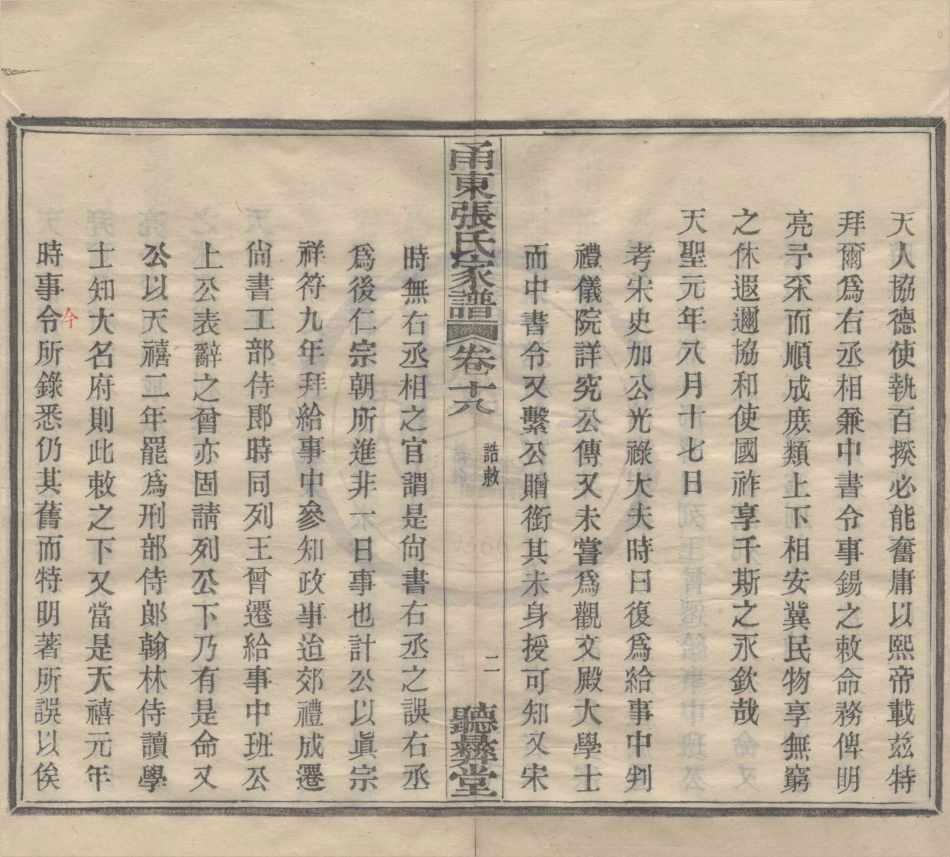 天人協德使執百揆必能奮庸以熙帝載茲特
拜爾爲右丞相兼中書令事錫之敕命務俾明
亮予采而順成庶類上下相安冀民物享無窮
之休遐邇協和使國祚享千斯之永欽哉
天聖元年八月十七日
考宋史加公光祿大夫時曰復爲給事中判
禮儀院詳究公傳又未嘗爲觀文殿大學士
而中書令又繫公贈銜其未身授可知又宋
甬東張氏家譜
卷十八
誥敕
二
聽彝堂
時無右丞相之官謂是尙書右丞之誤右丞
爲後仁宗朝所進非一日事也計公以眞宗
祥符九年拜給事中參知政事迨郊禮成遷
尙書工部侍郎時同列王曾遷給事中班公
上公表辭之曾亦固請列公下乃有是命又
公以天禧二年罷爲刑部侍郞翰林侍讀學
士知大名府則此敕之下又當是天禧元年
時事今令所錄悉仍其舊而特明著所誤以俟